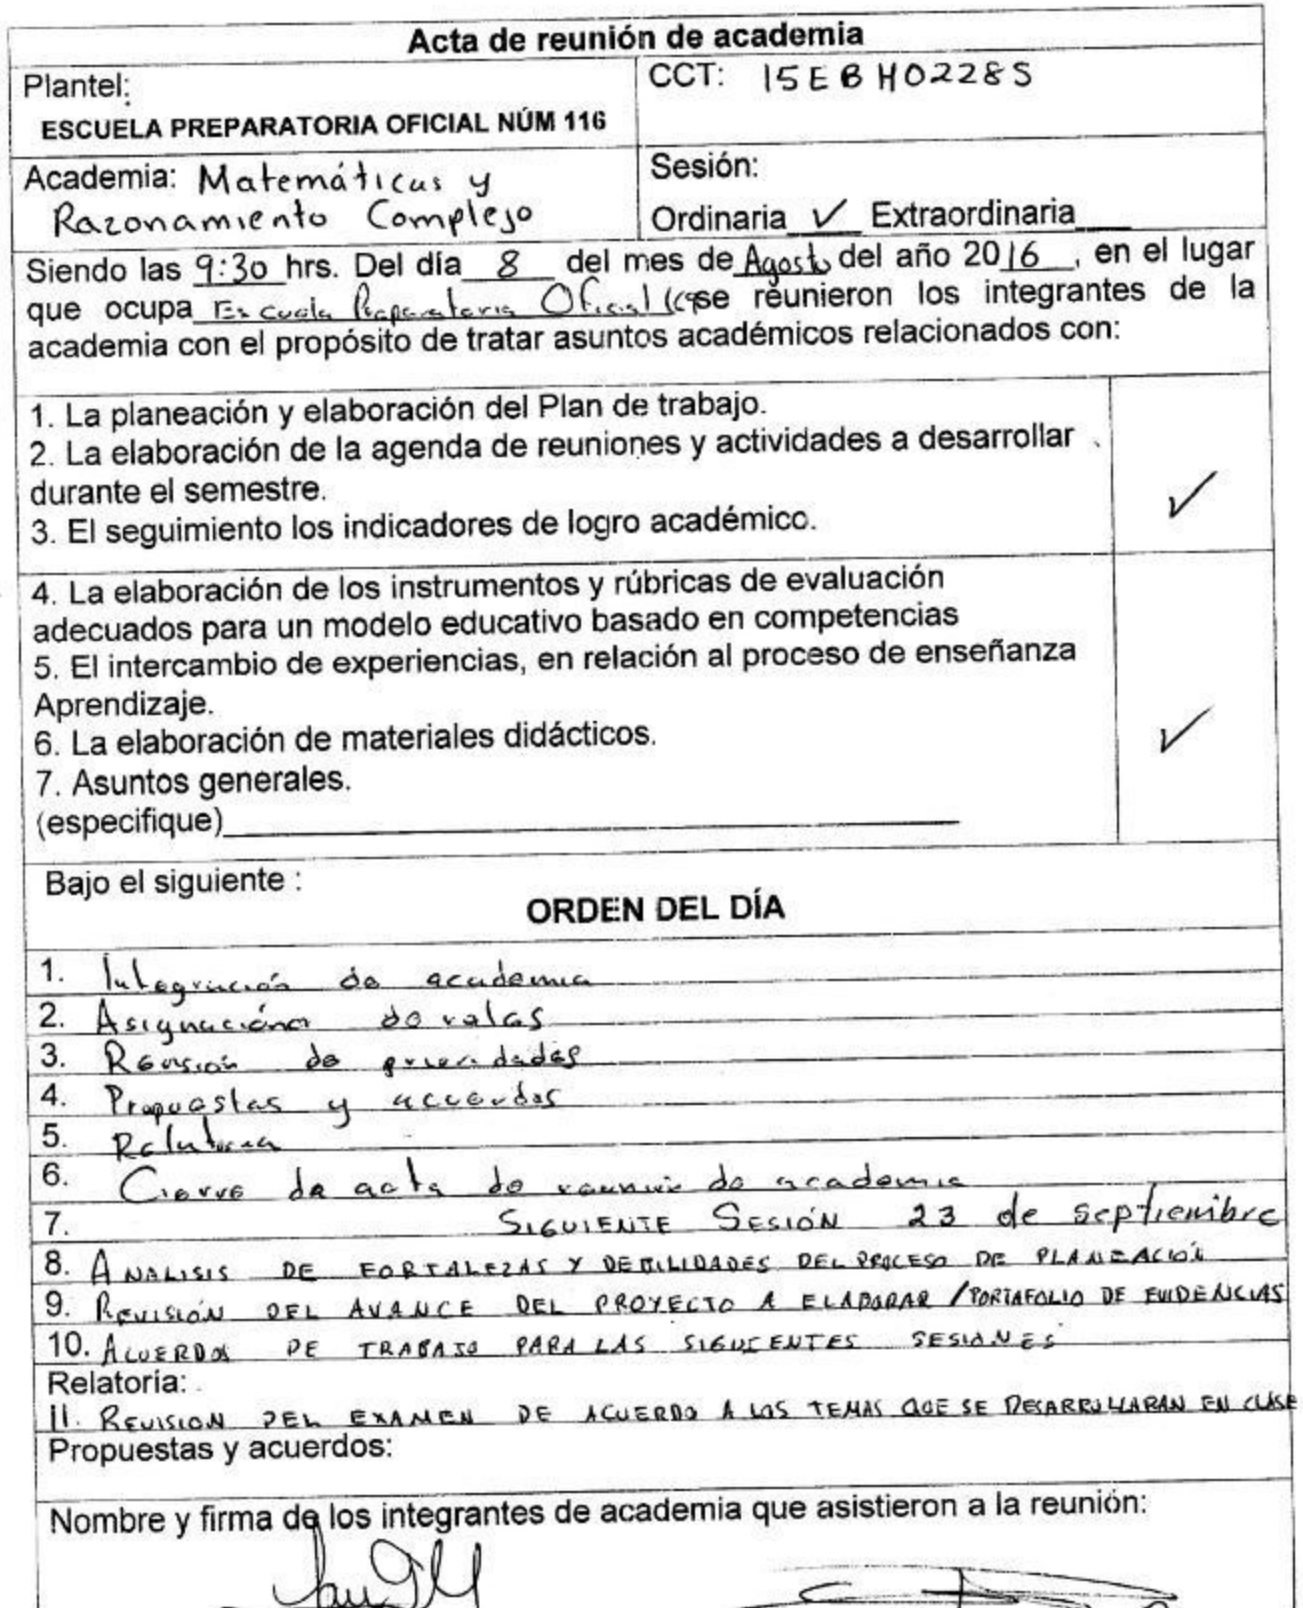 Acta de reunión de academia
Plantel:
ESCUELA PREPARATORIA OFICIAL NÚM 116
CCT: 15EBH0228S
Academia: Matemáticas y
Razonamiento Complejo
Sesión:
Ordinaria ✓ Extraordinaria
Siendo las 9:30 hrs. Del día 8 del mes de Agosto del año 2016, en el lugar
que ocupa Escuela Preparatoria Oficial se reunieron los integrantes de la
academia con el propósito de tratar asuntos académicos relacionados con:
1. La planeación y elaboración del Plan de trabajo.
2. La elaboración de la agenda de reuniones y actividades a desarrollar
durante el semestre.
3. El seguimiento los indicadores de logro académico.
✓
4. La elaboración de los instrumentos y rúbricas de evaluación
adecuados para un modelo educativo basado en competencias
5. El intercambio de experiencias, en relación al proceso de enseñanza
Aprendizaje.
6. La elaboración de materiales didácticos.
7. Asuntos generales.
(especifique)
✓
Bajo el siguiente :
ORDEN DEL DÍA
1. Integración de academia
2. Asignación de
3. Revisión de
4. Propuestas y acuerdos
5. Relatoria
6. Cierre de acta de reunión de academia
7. SIGUIENTE SESIÓN 23 de septiembre
8. ANALISIS DE FORTALEZAS Y DEBILIDADES DEL PROCESO DE PLANEACIÓN
9. REVISIÓN DEL AVANCE DEL PROYECTO A ELABORAR / PORTAFOLIO DE EVIDENCIAS
10. ACUERDOS DE TRABAJO PARA LAS SIGUIENTES SESIONES
Relatoría:
11. REVISION DEL EXAMEN DE ACUERDO A LOS TEMAS QUE SE DESARROLLARAN EN CLASE
Propuestas y acuerdos:
Nombre y firma de los integrantes de academia que asistieron a la reunión: